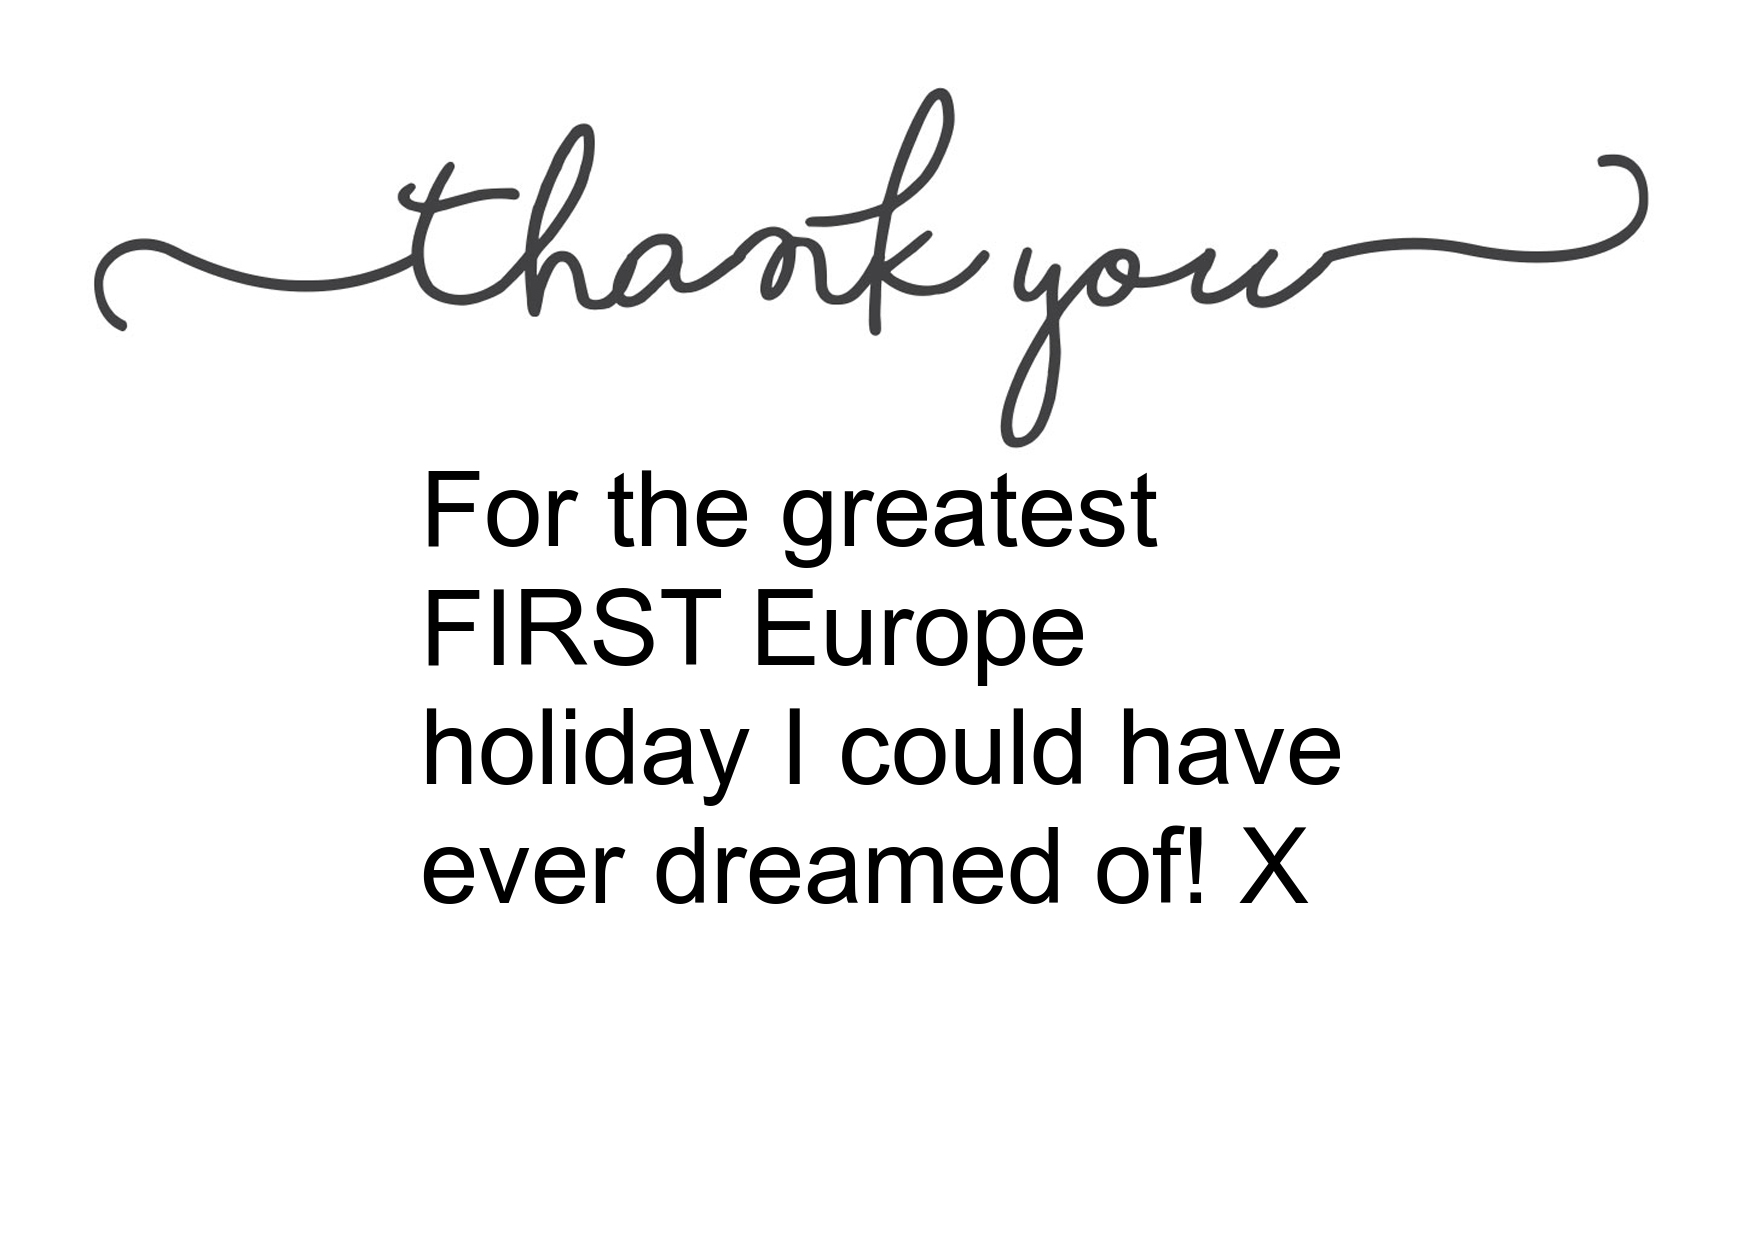 thank you
For the greatest
FIRST Europe
holiday I could have
ever dreamed of! X